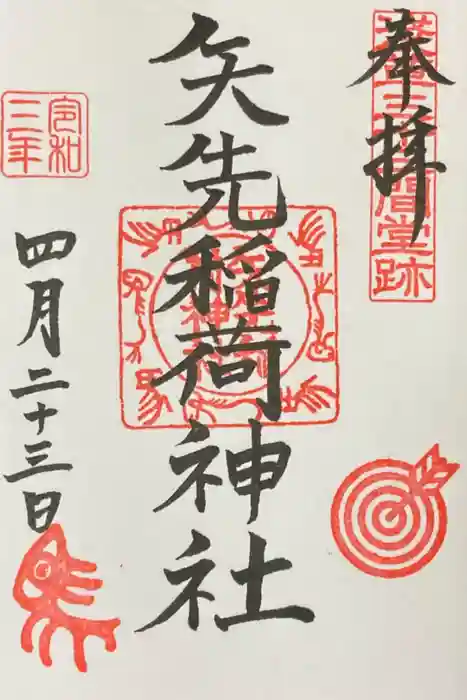 奉拝
浅草三十三間堂跡
矢先稲荷神社
令和
三年
四月二十三日